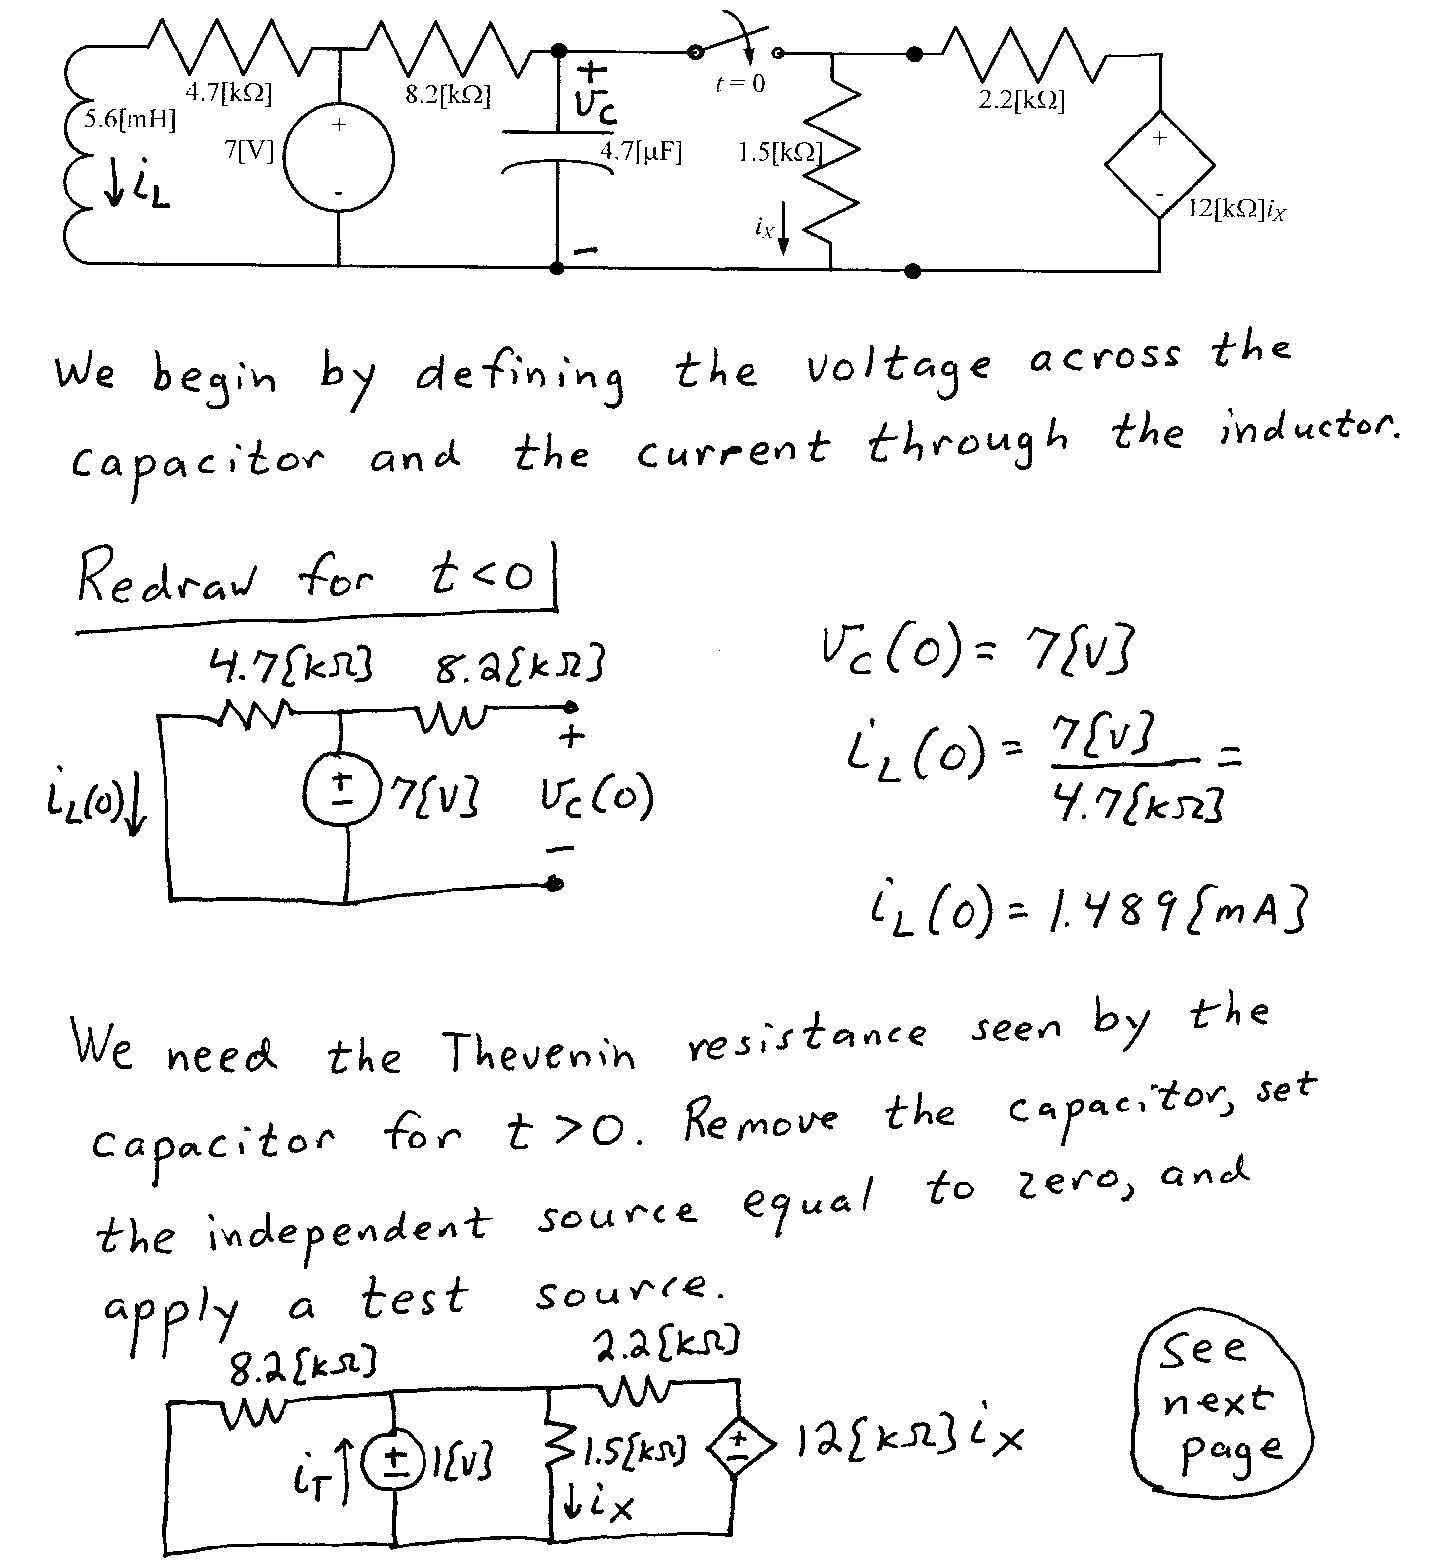 4.7[kΩ]
8.2[kΩ]
+
v_C
t = 0
2.2[kΩ]
5.6[mH]
7[V]
+
-
4.7[μF]
1.5[kΩ]
+
-
i_L
i_X
12[kΩ]i_X
−
We begin by defining the voltage across the
capacitor and the current through the inductor.
Redraw for t<0
4.7{kΩ} 8.2{kΩ}
i_L(0)
+
−
7{V}
+
v_C(0)
−
v_C(0) = 7{V}
i_L(0) = 7{V} =
4.7{kΩ}
i_L(0) = 1.489{mA}
We need the Thevenin resistance seen by the
capacitor for t>0. Remove the capacitor, set
the independent source equal to zero, and
apply a test source.
8.2{kΩ}
2.2{kΩ}
i_T
+
−
1{V}
1.5{kΩ}
i_X
+
−
12{kΩ}i_X
See
next
page